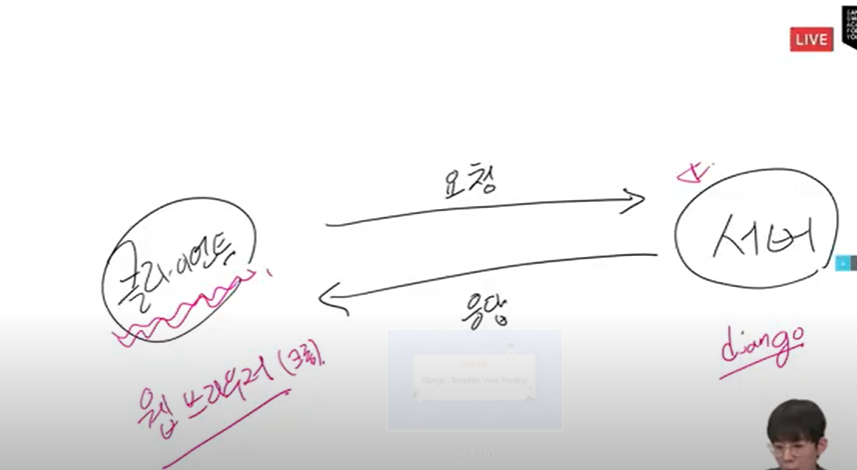 LIVE
요청
클라이언트
서버
응답
django
웹 브라우저 (크롬).
Django - Template, View, Routing